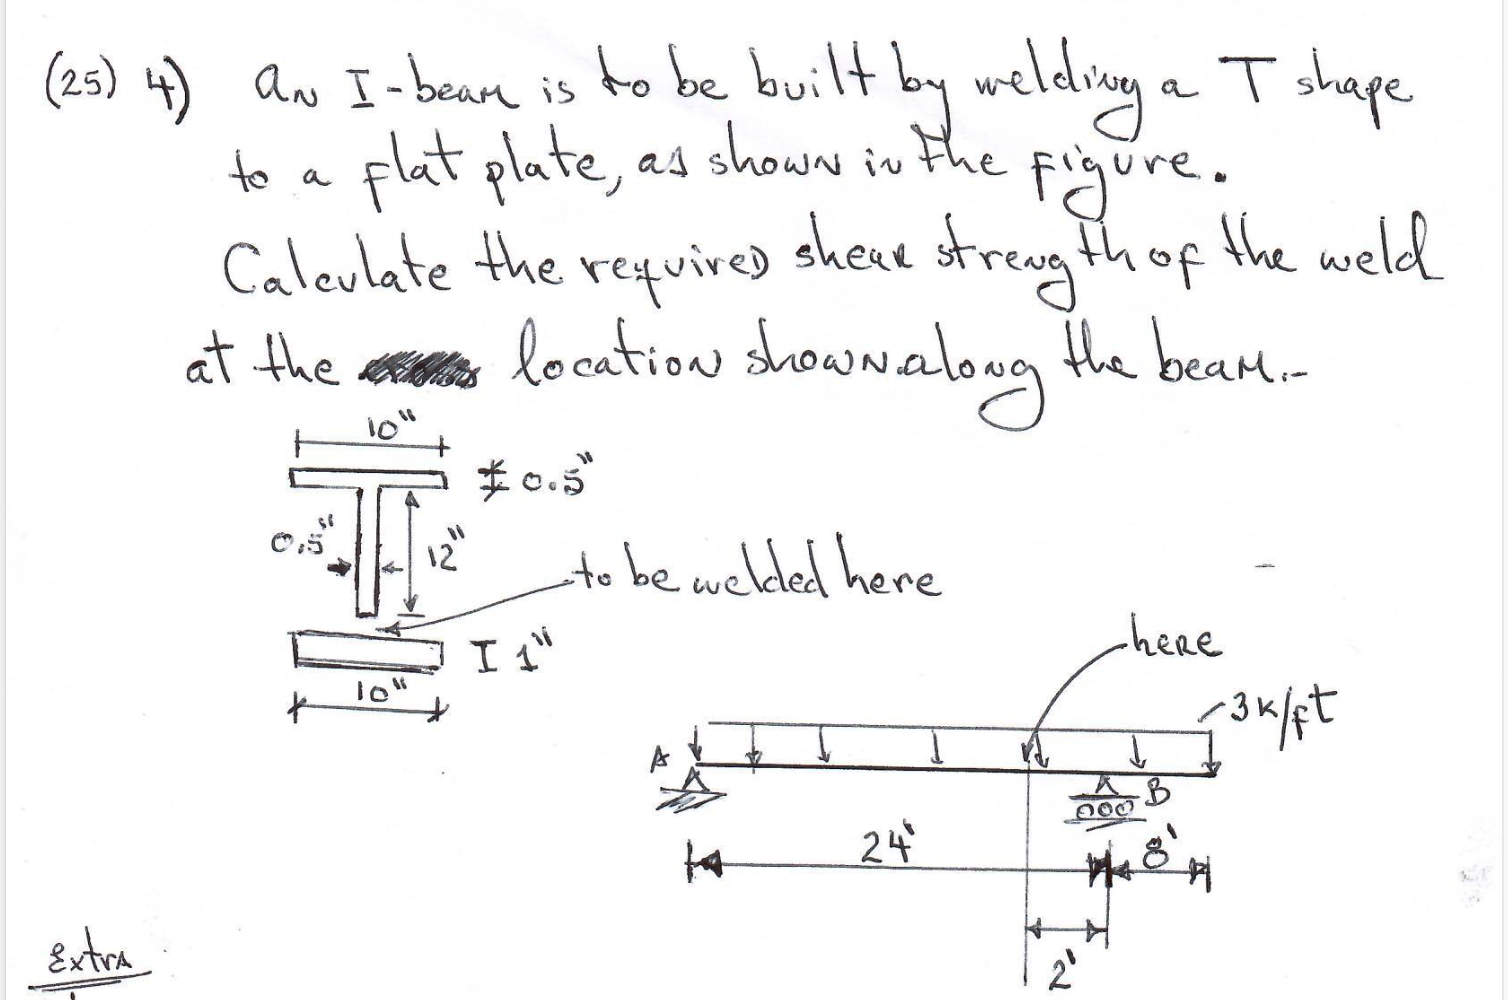 (25) 4) An I-beam is to be built by welding a T shape
to a flat plate, as shown in the figure.
Calculate the required shear strength of the weld
at the location shown along the beam.-
10"
0.5"
0.5"
12"
to be welded here
1"
10"
here
3k/ft
A
B
24'
8'
2'
Extra